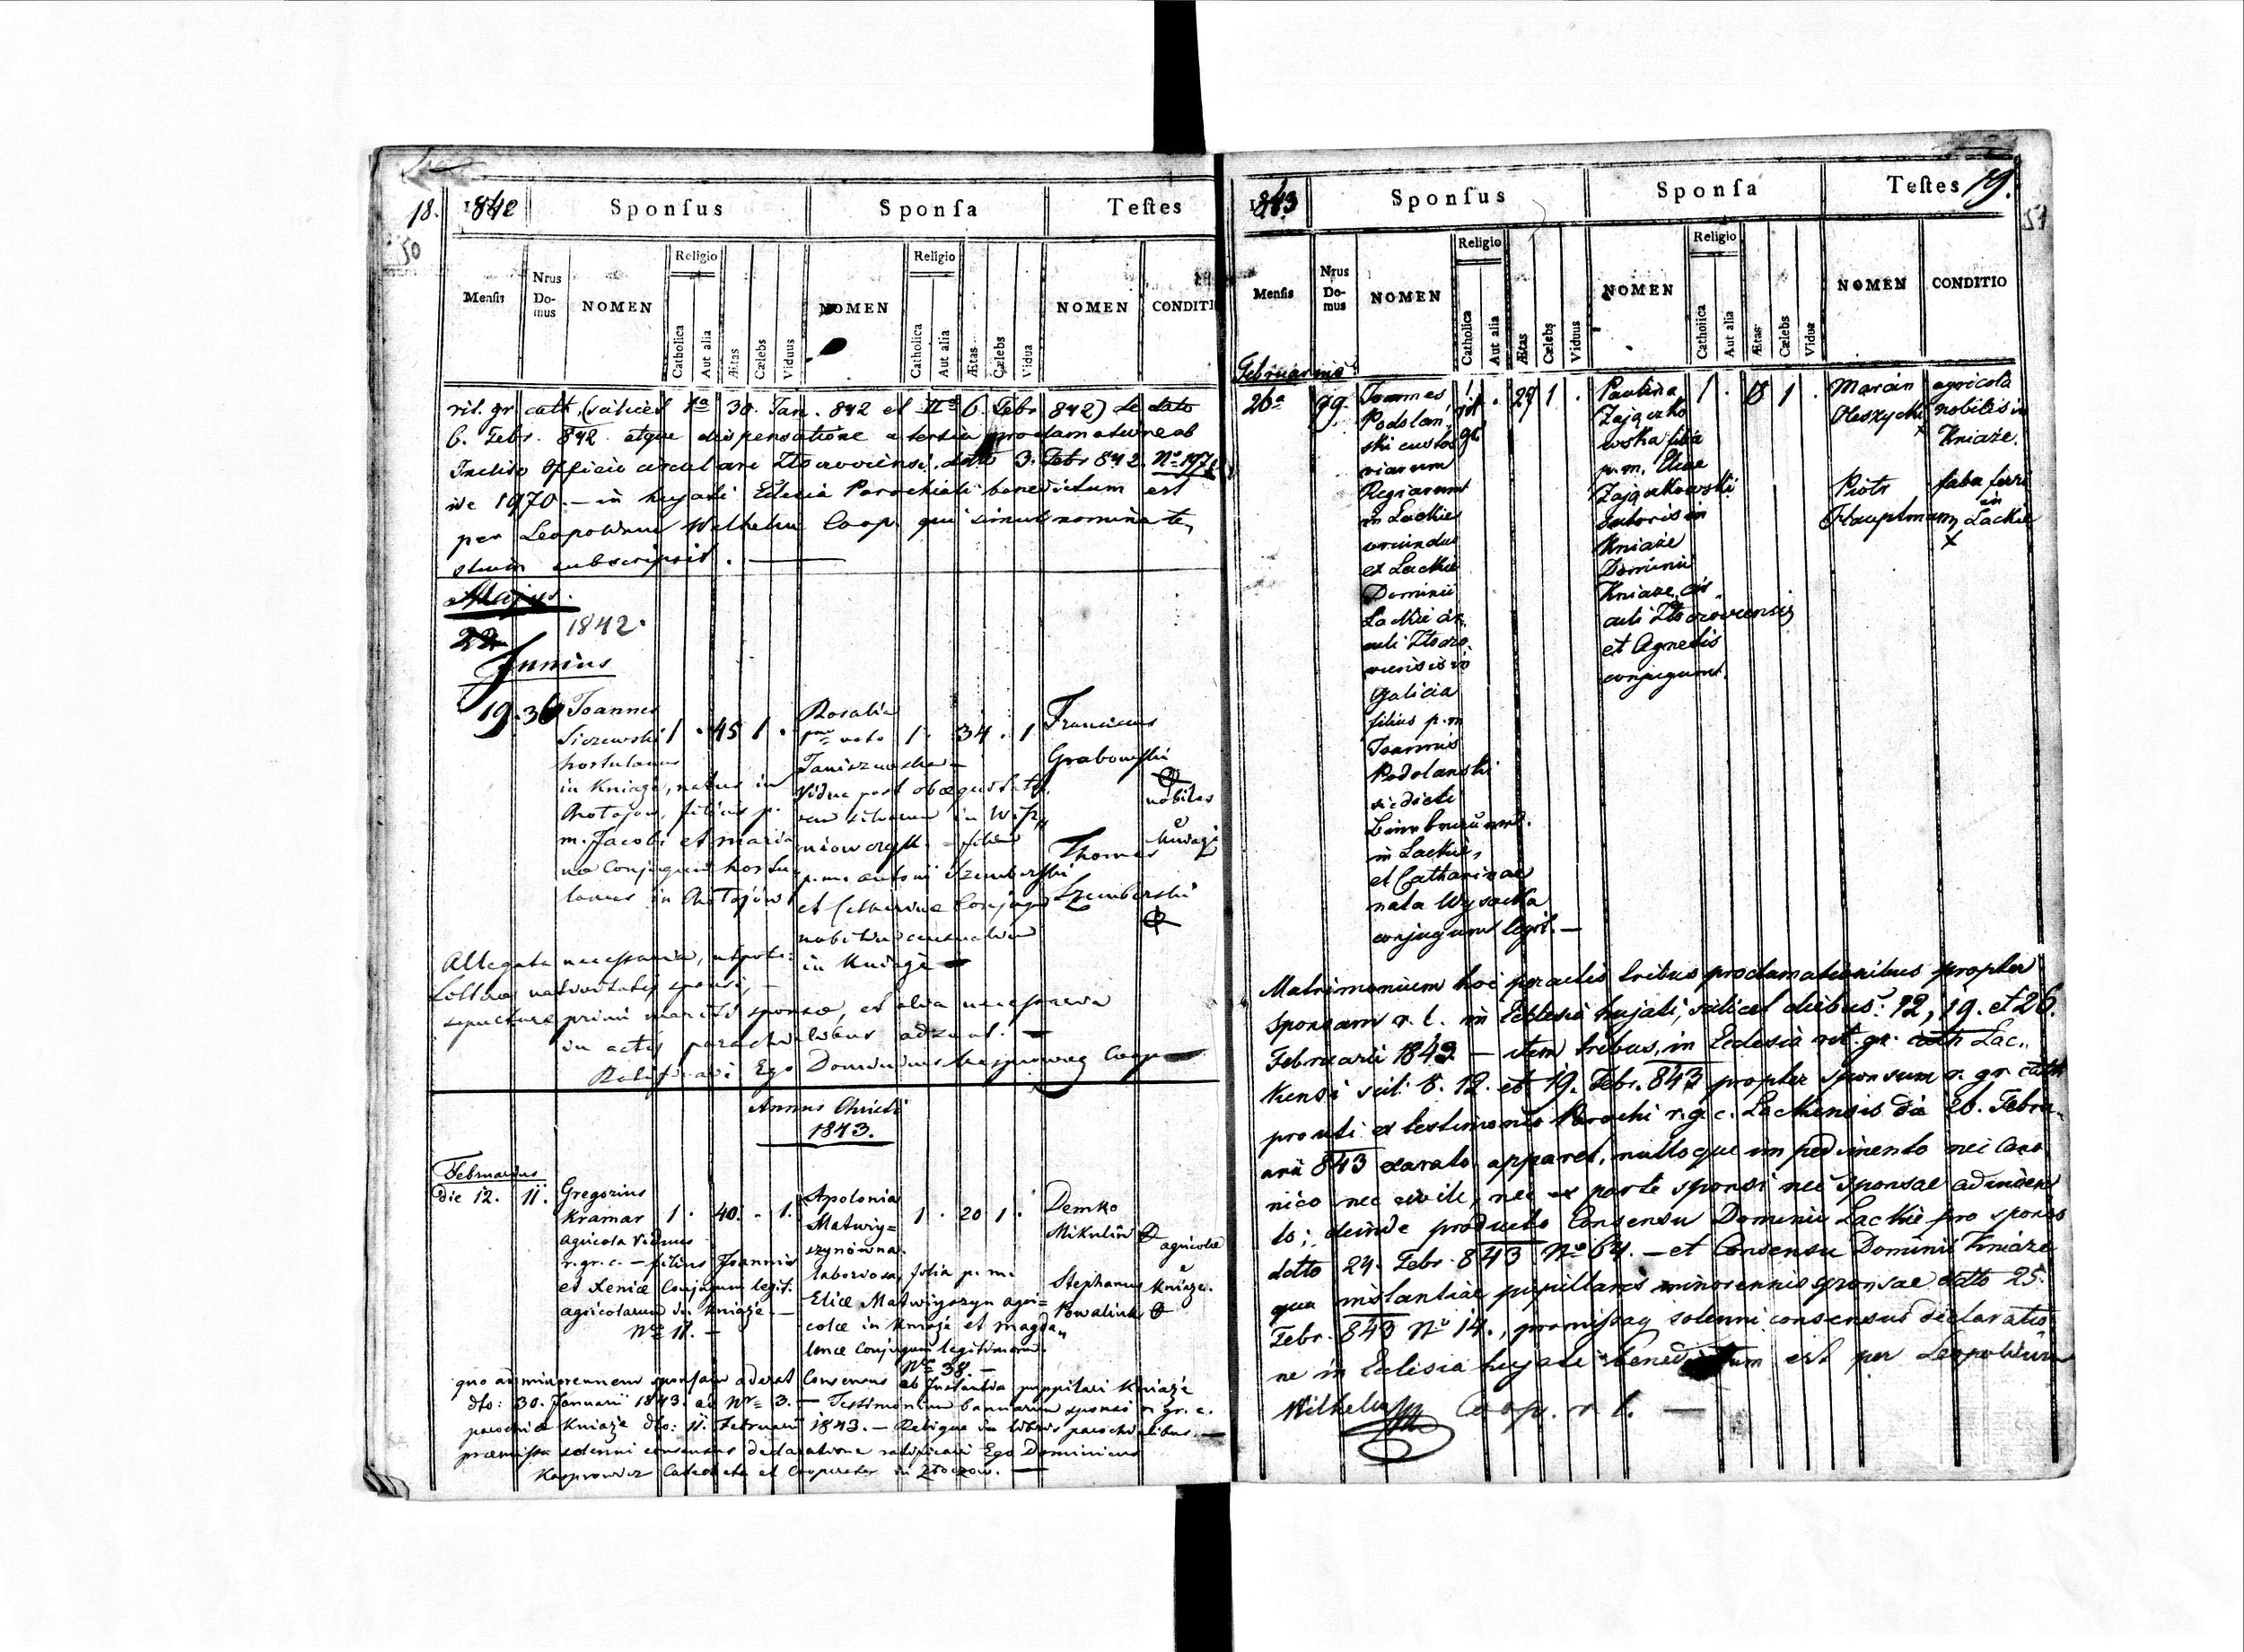 18.
50
1842
Sponſus
Sponſa
Teſtes
Menſis
Nrus Do-mus
NOMEN
Religio
Catholica
Aut alia
Ætas
Cælebs
Viduus
NOMEN
Religio
Catholica
Aut alia
Ætas
Cælebs
Vidua
NOMEN
CONDITI
rit. gr. cath. (scilicet 1ª 30. Jan. 842 et IIª 6. Febr. 842) de dato
6. Febr. 842. atque dispensatione a tertia proclamatione ab
Inclito Officio circulari Złoczoviensi. dato 3. Febr 842. Nº 197
1970. — in hujati Eclesia Parochiali benedictum est
per Leopoldum Wilhelm Coop. qui simul nomina te
stium subscripsit. —
Majus.
22
1842.
Junius
19. 36
Joannes
hortulanus
in Kniaże, natus in
filius p.
m. Jacobi et Maria
na Conjugum hortu
lanus in
1 . 45 1 .
Rosalia
voto
vidua post
filia
p. m. Antoni
et Conjugum
in Kniaże
1 . 34 . 1
Franciscus
Grabowski
nobiles
Kniaże
Thomas
Szemberski
Allegata necessaria, utpote:
natalitatis sponsi,
sepulturae primi mariti sponsae, et alia necessaria
in actis parochialibus adsunt. —
Ratificavi Ego Dominicus Coop
Annus Christi
1843.
Februarius
die 12.
11.
Gregorius
Kramar
agricola viduus
r. gr. c. — filius Joannis
et Xeniæ Conjugum legit.
agricolarum in Kniaże. —
Nro 11. —
1 . 40. . 1.
Apolonia
Matwiy=
szynówna.
laboriosa, filia p. m.
Eliæ Matwiyszyn agri=
colæ in Kniaże et Magda„
lenæ Conjugum legitimorum.
Nro 38 —
1 . 20 1 .
Demko
Mikulin
agricolæ
Stephanus
Kniaże.
Powaliuk
quo ad minorennem sponsam aderat Consensus ab Instantia puppillari Kniaże
dto: 30. Januarii 1843. ad Nro 3. — Testimonium bannorum sponsi r. gr. c.
parochiæ Kniaże dto: 11. Februarii 1843. — Reliqua in libris parochialibus. —
præmissa solenni consensus declaratione ratificavi Ego Dominicus
Kasprowicz Catecheta et Cooperator in Złoczow. —
19.
51
1843
Sponſus
Sponſa
Teſtes
Menſis
Nrus Do-mus
NOMEN
Religio
Catholica
Aut alia
Ætas
Cælebs
Viduus
NOMEN
Religio
Catholica
Aut alia
Ætas
Cælebs
Vidua
NOMEN
CONDITIO
Februarius
26ª
99.
Joannes
Podolań
ski custos
viarum
Regiarum
in Lackie
oriundus
et Lackie
Dominii
Lackie cir
culi Złoczo
viensis in
Galicia
filius p. m
Joannis
Podolanski
in Lackie,
et Catharinae
nata Wysocka
conjugum legit. —
1 . 27 1 .
Paulina
Zajączko
wska filia
p. m. Eliae
Zajączkowski
sutoris in
Kniaże
Dominii
Kniaże, cir
culi Złoczoviensis
et Agnetis
conjugum.
1 . 18 1 .
Marcin
Oleszycki
agricola
nobilis in
Kniaże.
Piotr
Hauptmann
faber ferri
in
Lackie
x
Matrimonium hoc peractis tribus proclamationibus propter
Sponsam r. l. in Ecclesia hujati, scilicet diebus: 12, 19. et 26.
Februarii 1843. — item tribus in Eclesia rit. gr. cath Lac„
kensi scil: 8. 12. et 19. Febr. 843 propter sponsum r. gr. cath
prouti ex testimonio Parochi r. g. c. Lackensis dd 26. Febru„
arii 843 exarato apparet, nulloque impedimento nec cano
nico nec civile, nec ex parte sponsi nec sponsae adinven
to; deinde producto Consensu Dominii Lackie pro sponso
datto 24. Febr. 843 Nº 64. — et Consensu Dominii Kniaże
qua instantiae pupillaris minorennis sponsae datto 25.
Febr. 843 Nº 14., promissaq solenni consensus declaratio
ne in Eclesia hujate benedictum est per Leopoldum
Wilhelm Coop. r. l. —